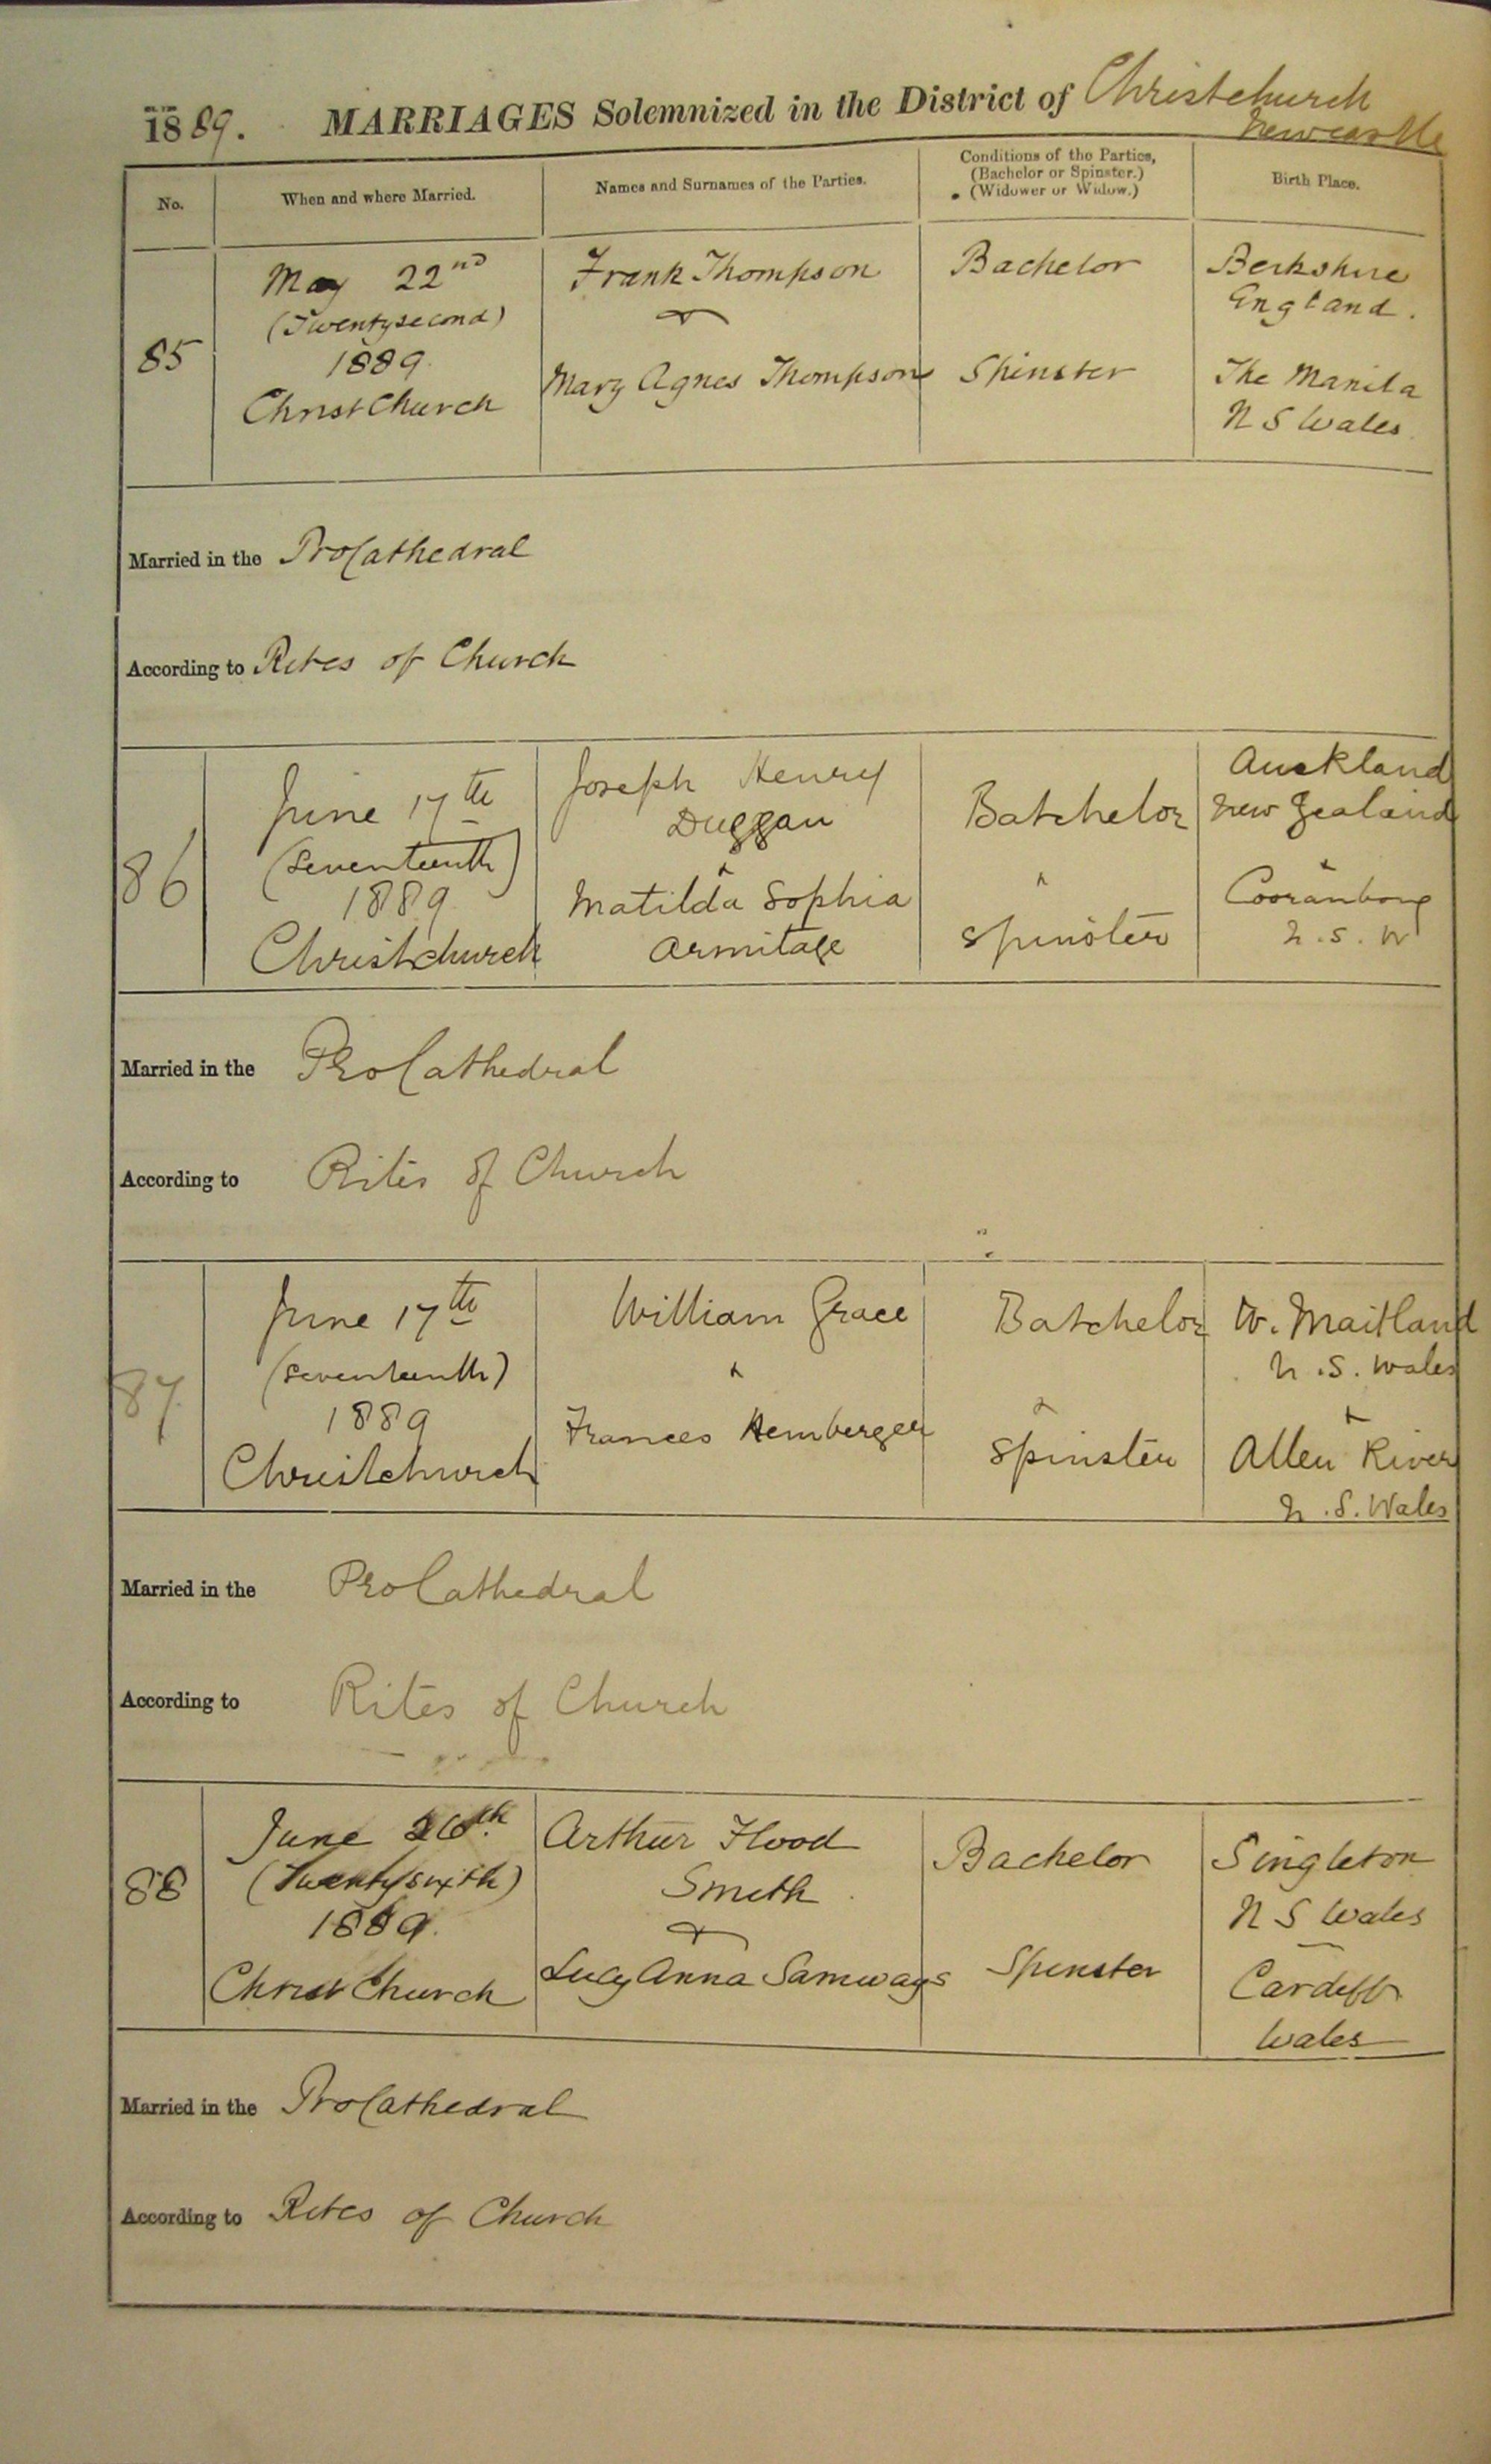 1889. MARRIAGES Solemnized in the District of Christchurch
Newcastle
No. When and where Married. Names and Surnames of the Parties. Conditions of the Parties, (Bachelor or Spinster.) (Widower or Widow.) Birth Place.
May 22nd Frank Thompson Bachelor Berkshire
(Twentysecond) & England.
85 1889. Mary Agnes Thompson Spinster The Manila
Christ Church N S Wales
Married in the ProCathedral
According to Rites of Church
June 17th Joseph Henry Batchelor Auckland
(Seventeenth) Duggan New Zealand
86 1889 & & &
Matilda Sophia Spinster Cooranbong
Christchurch Armitage N.S.W
Married in the ProCathedral
According to Rites of Church
June 17th William Grace Batchelor W. Maitland
(Seventeenth) & N.S. Wales
87 1889 Frances Hemberger & &
Christchurch Spinster Allen River
N.S. Wales
Married in the ProCathedral
According to Rites of Church
June 26th Arthur Flood Bachelor Singleton
88 (Twentysixth) Smith N S Wales
1889. &
Christ Church Lucy Anna Samways Spinster Cardiff
Wales
Married in the ProCathedral
According to Rites of Church